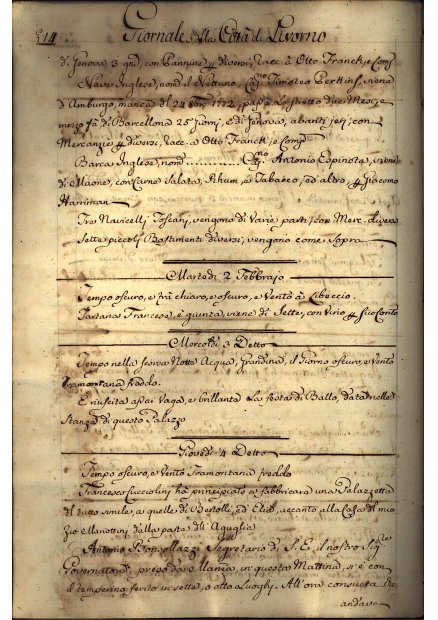 514 Giornale della Città di Livorno
di Genova 3 gni, con Pannine, e diversi, Racc. à Otto Franck, e Comp.
Nave Inglese, nom. il Nettuno, Cap.no Timoteo Perkins, viene
d'Amburgo, manca il 24 1772, passò lo stretto dice
mezzo fà, di Barcellona 25 giorni, e di Genova, avanti jeri, con
Mercanzie, e diversi, Racc. a Otto Franck, e Comp.
Barca Inglese, nom. ......... Cap.no Antonio Espinosa, viene
di Maone, con Carne Salata, Rhum, e Tabacco, ed altro, p Giacomo
Harriman
Tre Navicelli Toscani, vengono di Varie parti, con Merc. diverse
Sette piccoli Bastimenti diversi, vengono come Sopra
Martedì 2 Febbrajo
Tempo oscuro, e trà chiaro, e oscuro, e Vento à Libeccio.
Tartana Francese, è giunta, viene di Sette, con Vino p suo Conto
Mercoldì 3 Detto
Tempo nella scorsa Notte Acqua, Grandina, il Giorno oscuro, e Vento
Tramontana freddo.
È riuscita assai Vaga, e brillante La festa di Ballo, data nelle
Stanze di questo Palazzo
Giovedì 4 Detto
Tempo oscuro, e Vento Tramontana freddo
Francesco Lucciolini hà principiato a fabbricare una Palazzetta
del tutto simile, a quelle di Bertolli, ed Elia, accanto alla Casa del mio
Zio Mariottini dalla parte dell' Aguglia
Antonio Bonvollazzi Segretario di S. E. il nostro Sig.re
Governatore, preso da Mania, in questa Mattina, si è con
il temperino ferito in sette, o otto Luoghi. All'ora consueta che
andava